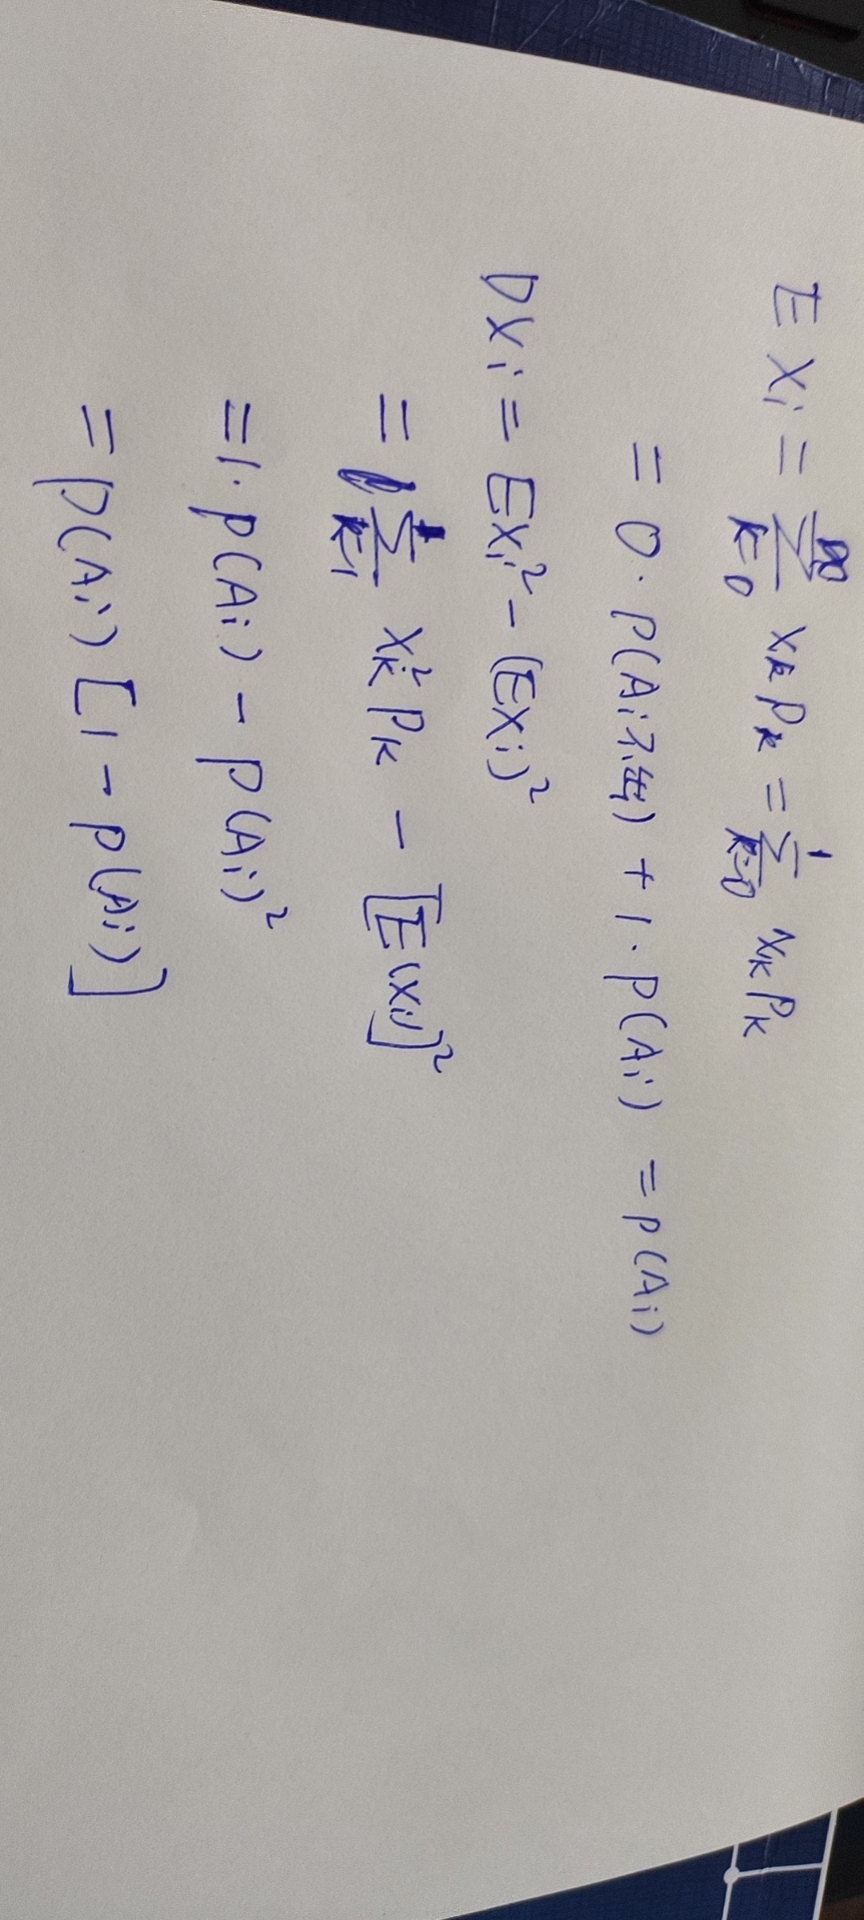 E Xi = ∑_{k=0}^{∞} xk pk = ∑_{k=0}^{1} xk pk
= 0 · P(Ai不出) + 1 · P(Ai) = P(Ai)
DXi = EXi² - (EXi)²
= ∑_{k=1}^{1} xk² pk - [E(Xi)]²
= 1 · P(Ai) - P(Ai)²
= P(Ai) [1 - P(Ai)]